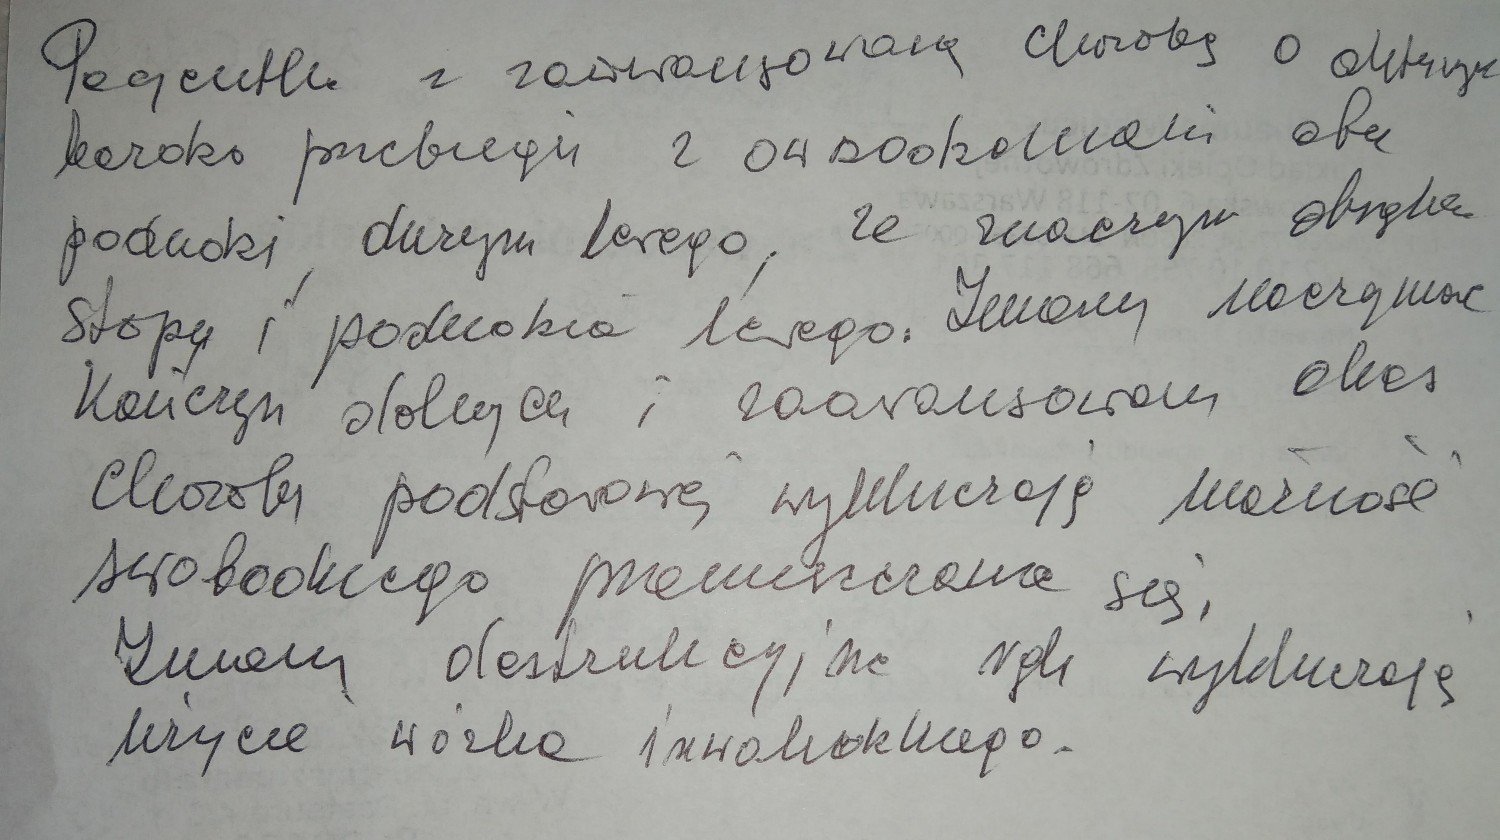 Pacjentka z zaawansowaną chorobą o
bardzo przebiegu z owrzodzeniami obu
podudzi, dużym lewego, ze znacznym obrzękiem
stopy i podudzia lewego. Zmiany naczyniowe
kończyn dolnych i zaawansowany okres
choroby podstawowej wykluczają możność
swobodnego przemieszczania się,
Zmiany destrukcyjne rąk wykluczają
użycie wózka inwalidzkiego.